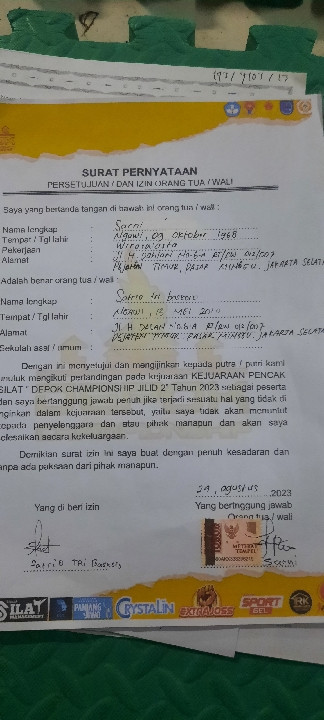 SURAT PERNYATAAN
PERSETUJUAN / DAN IZIN ORANG TUA / WALI
Saya yang bertanda tangan di bawah ini orang tua / wali :
Nama lengkap : Sarni
Tempat / Tgl lahir : Ngawi, 09 Oktober 1968
Pekerjaan : Wiraswasta
Alamat : Jl H. Dahlan No.61A RT/RW 012/007
PEJATEN TIMUR, PASAR MINGGU, JAKARTA SELATAN
Adalah benar orang tua / wali dari :
Nama lengkap : Satrio tri
Tempat / Tgl lahir : NGAWI, 13 MEI
Alamat : Jl H DALAN NO.61A RT/RW 012/007
PEJATEN TIMUR PASAR MINGGU, JAKARTA SELATAN
Sekolah asal / umum :
Dengan ini menyetujui dan mengijinkan kepada putra / putri kami
untuk mengikuti pertandingan pada kejuaraan KEJUARAAN PENCAK
SILAT " DEPOK CHAMPIONSHIP JILID 2" Tahun 2023 sebagai peserta
dan saya bertanggung jawab penuh jika terjadi sesuatu hal yang tidak di
inginkan dalam kejuaraan tersebut, yaitu saya tidak akan menuntut
kepada penyelenggara dan atau pihak manapun dan akan saya
selesaikan secara kekeluargaan.
Demikian surat izin ini saya buat dengan penuh kesadaran dan
tanpa ada paksaan dari pihak manapun.
24, agustus 2023
Yang di beri izin
Yang bertnggung jawab
Orang tua / wali
METERAI
TEMPEL
SATRIO TRI
Sarni
SILAT
MANAGEMENT
PANJANG
JIWO
CRYSTALIN
EXTRAJOSS
SPORT
GEL
RK